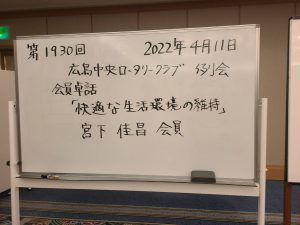 第1930回 2022年4月11日
広島中央ロータリークラブ 例会
会員卓話
「快適な生活環境の維持」
宮下 佳昌 会員